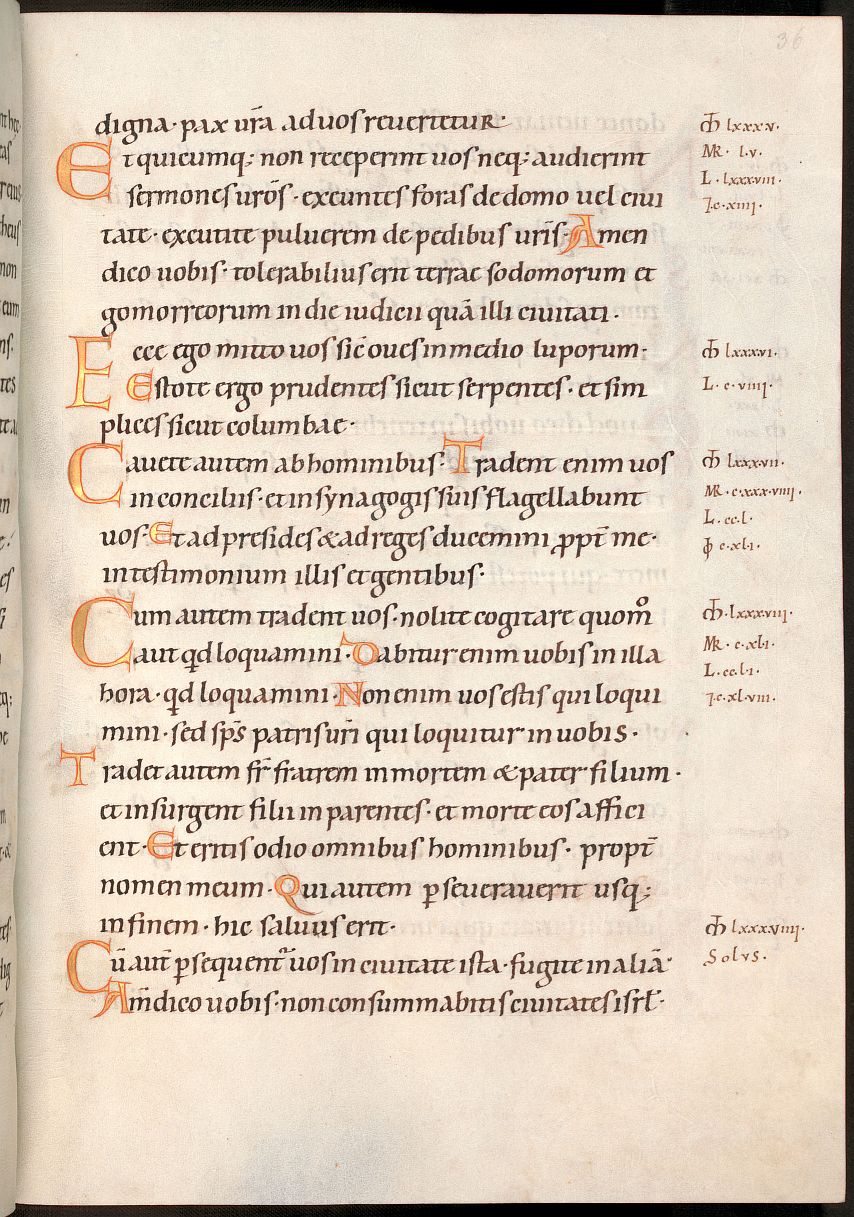 36
digna· pax ur̄a ad uos reuertetur·
Et quicumq; non receperint uos neq; audierint
sermones ur̄os· exeuntes foras de domo uel ciui
tate· excutite puluerem de pedibus ur̄is· Amen
dico uobis· tolerabilius erit terrae sodomorum et
gomorreorum in die iudicii quā illi ciuitati·
Ecce ego mitto uos sic̄ oues in medio luporum·
Estote ergo prudentes sicut serpentes· et sim
plices sicut columbae·
Cauete autem ab hominibus· Tradent enim uos
in conciliis· et in synagogis suis flagellabunt
uos· Et ad presides & ad reges ducemini ꝓpt̄ me·
in testimonium illis et gentibus·
Cum autem tradent uos· nolite cogitare quom̊
aut qd̄ loquamini· Dabitur enim uobis in illa
hora· qd̄ loquamini· Non enim uos estis qui loqui
mini· sed sp̄s patris ur̄i qui loquitur in uobis·
Tradet autem fr̄ fratrem in mortem & pater filium·
et insurgent filii in parentes· et morte eos affici
ent· Et eritis odio omnibus hominibus· propt̄
nomen meum· Qui autem ꝑseuerauerit usq;
in finem· hic saluus erit·
Cū aut̄ ꝑsequent᷑ uos in ciuitate ista· fugite in aliā·
Am̄ dico uobis· non consummabitis ciuitates isrł·
m̄ lxxxv·
MR· l·v·
L· lxxxviii·
I·c·xiiii·
m̄ lxxxvi·
L· c·viiii·
m̄ lxxxvii·
MR· c·xxx·viiii·
L· cc·l·
c·xl·i·
m̄· lxxxviii·
MR· c·xl·i·
L· cc·l·i·
I·c·xl·viii·
m̄ lxxxviiii·
Solus·